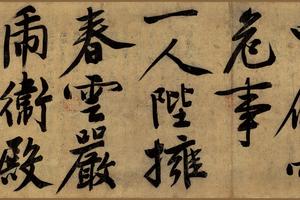 危事
一人陛擁
春雲嚴
虎衛殿